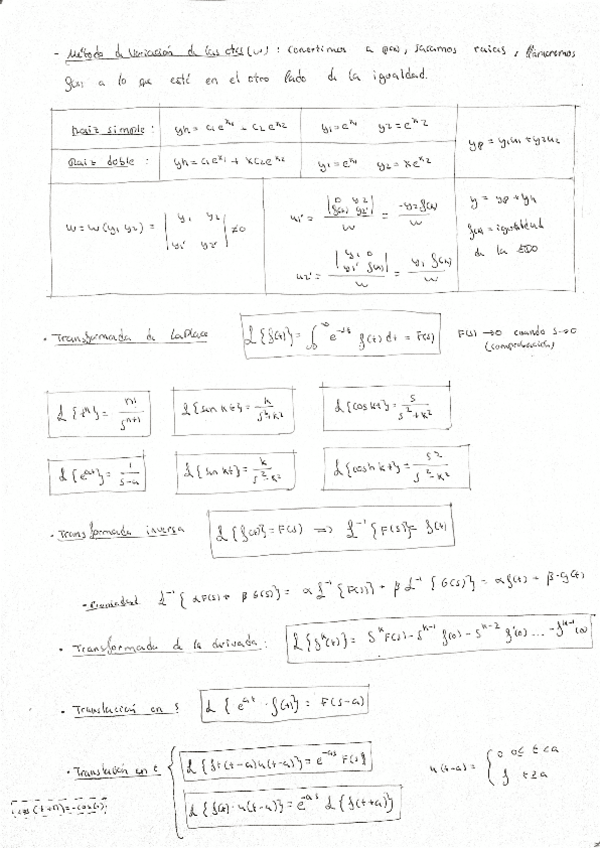 - Método de Variación de las ctes (w): convertimos a p(x), sacamos raices, llamaremos
f(x) a lo que esté en el otro lado de la igualdad.
Raiz simple: yh = c₁e^x₁ + c₂e^x₂ y₁ = e^x₁ y₂ = e^x₂ yp = y₁u₁ + y₂u₂
Raiz doble: yh = c₁e^x₁ + xc₂e^x₂ y₁ = e^x₁ y₂ = xe^x₂
w = w(y₁ y₂) = |y₁ y₂; y₁' y₂'| ≠ 0
u₁' = |0 y₂; f(x) y₂'| / w = -y₂f(x) / w
u₂' = |y₁ 0; y₁' f(x)| / w = y₁ f(x) / w
y = yp + yh
f(x) = igualdad
de la EDO
· Transformada de Laplace ℒ{f(t)} = ∫₀^∞ e^-st f(t) dt = F(s) F(s) → 0 cuando s → 0
(comprobación)
ℒ{t^n} = n! / s^n+1 ℒ{sen kt} = k / s²+k² ℒ{cos kt} = s / s²+k²
ℒ{e^at} = 1 / s-a ℒ{senh kt} = k / s²-k² ℒ{cosh kt} = s² / s²-k²
· Transformada inversa ℒ{f(t)} = F(s) ⟹ ℒ⁻¹{F(s)} = f(t)
- Linealidad ℒ⁻¹{αF(s) + βG(s)} = αℒ⁻¹{F(s)} + βℒ⁻¹{G(s)} = αf(t) + β·g(t)
· Transformada de la derivada: ℒ{f^k(t)} = s^k F(s) - s^k-1 f(0) - s^k-2 f'(0) ... - f^k-1(0)
· Translación en s ℒ{e^at · f(t)} = F(s-a)
· Translación en t { ℒ{f(t-a)u(t-a)} = e^-as F(s)
ℒ{f(t)·u(t-a)} = e^-as ℒ{f(t+a)}
u(t-a) = { 0 0≤t<a
1 t≥a
cos(t+π) = -cos(t)